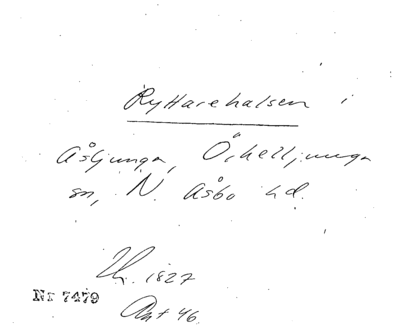 Ryttarehalsen i
Åsljunga, Örkelljunga
sn, N. Åsbo hd.
Th. 1827
Nr 7479
Ant 46